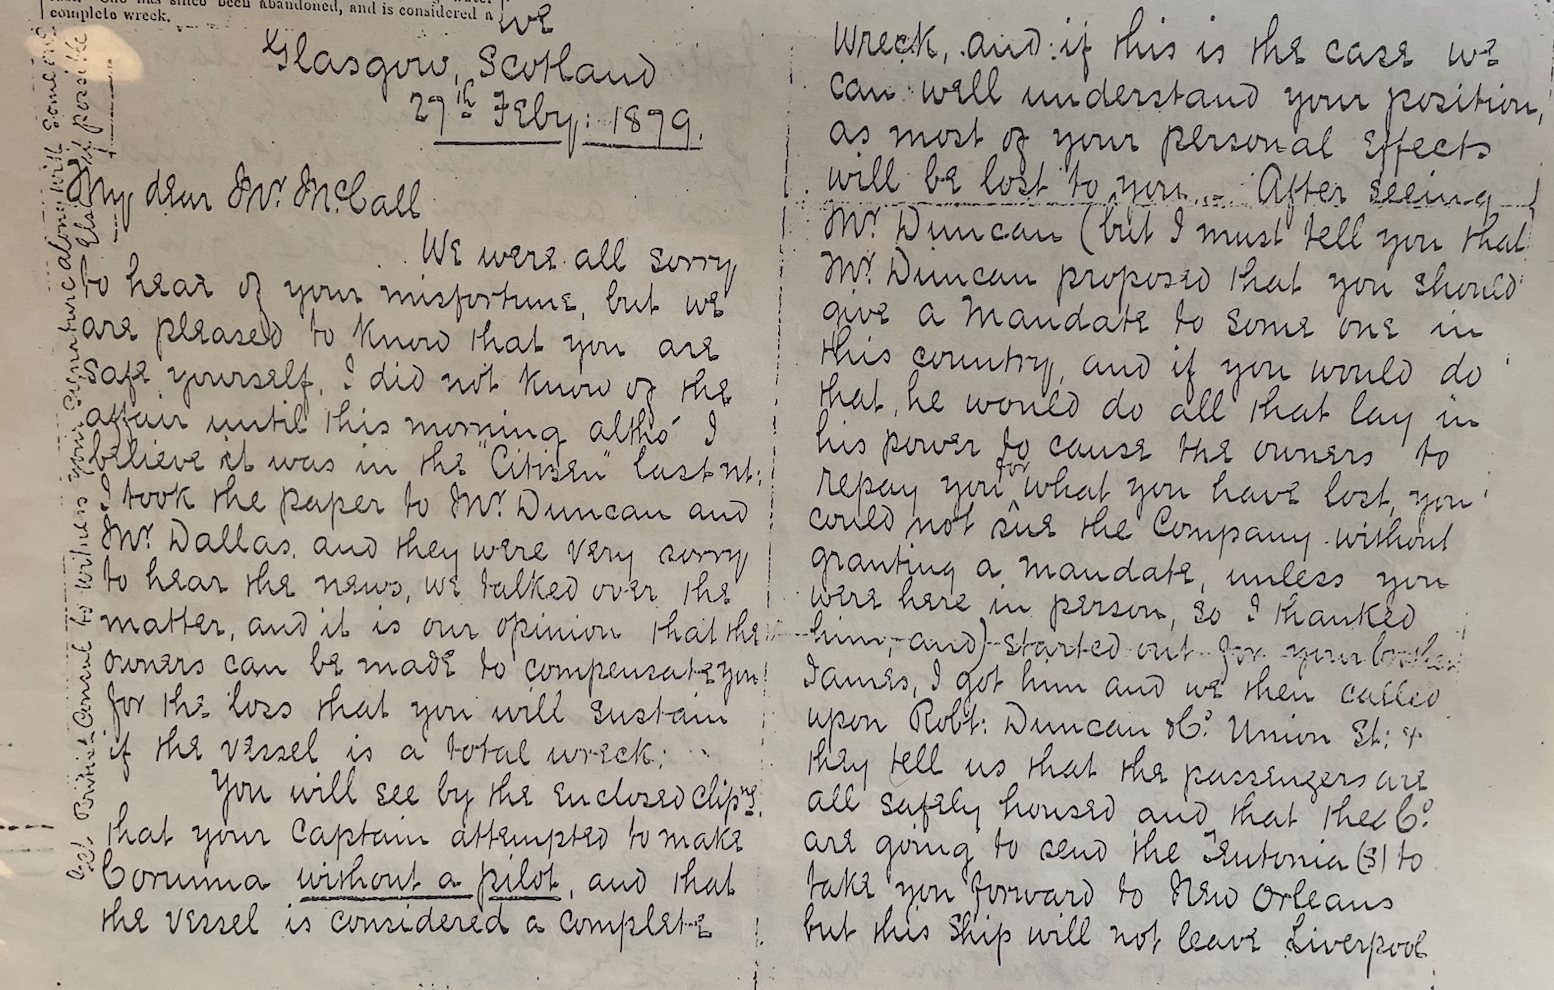 since been abandoned, and is considered a
complete wreck.
we
Glasgow, Scotland
27th Feby: 1879.
My dear Mr. McCall
We were all sorry
to hear of your misfortune, but we
are pleased to know that you are
safe yourself, I did not know of the
affair until this morning altho' I
believe it was in the "Citizen" last nt:
I took the paper to Mr. Duncan and
Mr. Dallas, and they were very sorry
to hear the news, we talked over the
matter, and it is our opinion that the
owners can be made to compensate you
for the loss that you will sustain
if the vessel is a total wreck:
You will see by the enclosed clipng.
that your Captain attempted to make
Corunna without a pilot, and that
the vessel is considered a complete
wreck, and if this is the case we
can well understand your position,
as most of your personal effects
will be lost to you. After seeing
Mr. Duncan (but I must tell you that
Mr. Duncan proposed that you should
give a mandate to some one in
this country, and if you would do
that, he would do all that lay in
his power to cause the owners to
repay you for what you have lost, you
could not sue the Company without
granting a mandate, unless you
were here in person, so I thanked
him, and) started out for your brother
James, I got him and we then called
upon Robt: Duncan & Co. Union St: &
they tell us that the passengers are
all safely housed and that the Co.
are going to send the Teutonia (S) to
take you forward to New Orleans
but this ship will not leave Liverpool
Get British Consul to witness your signature along with someone
Else if possible